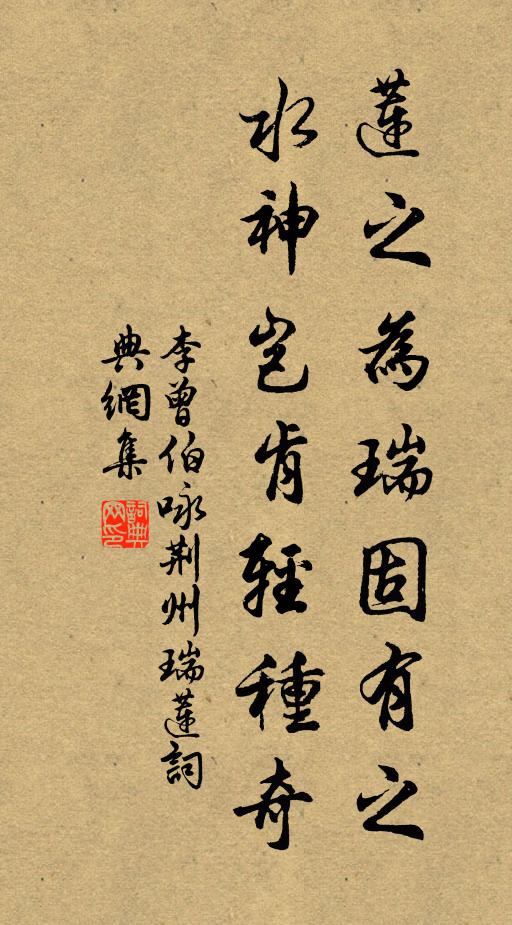 蓮之為瑞固有之
水神岂肯輕種奇
李曾伯咏荆州瑞蓮詞
典網集
詞典网印